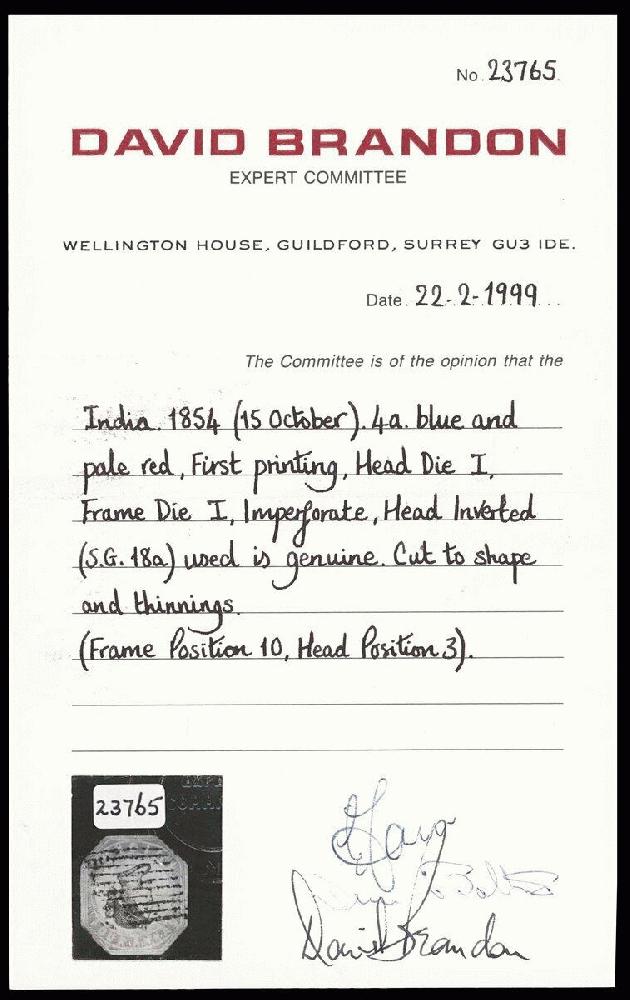 No. 23765.
DAVID BRANDON
EXPERT COMMITTEE
WELLINGTON HOUSE, GUILDFORD, SURREY GU3 IDE.
Date 22-2-1999...
The Committee is of the opinion that the
India. 1854 (15 October). 4a. blue and
pale red, First printing, Head Die I,
Frame Die I, Imperforate, Head Inverted
(S.G. 18a) used is genuine. Cut to shape
and thinnings.
(Frame Position 10, Head Position 3).
23765
David Brandon